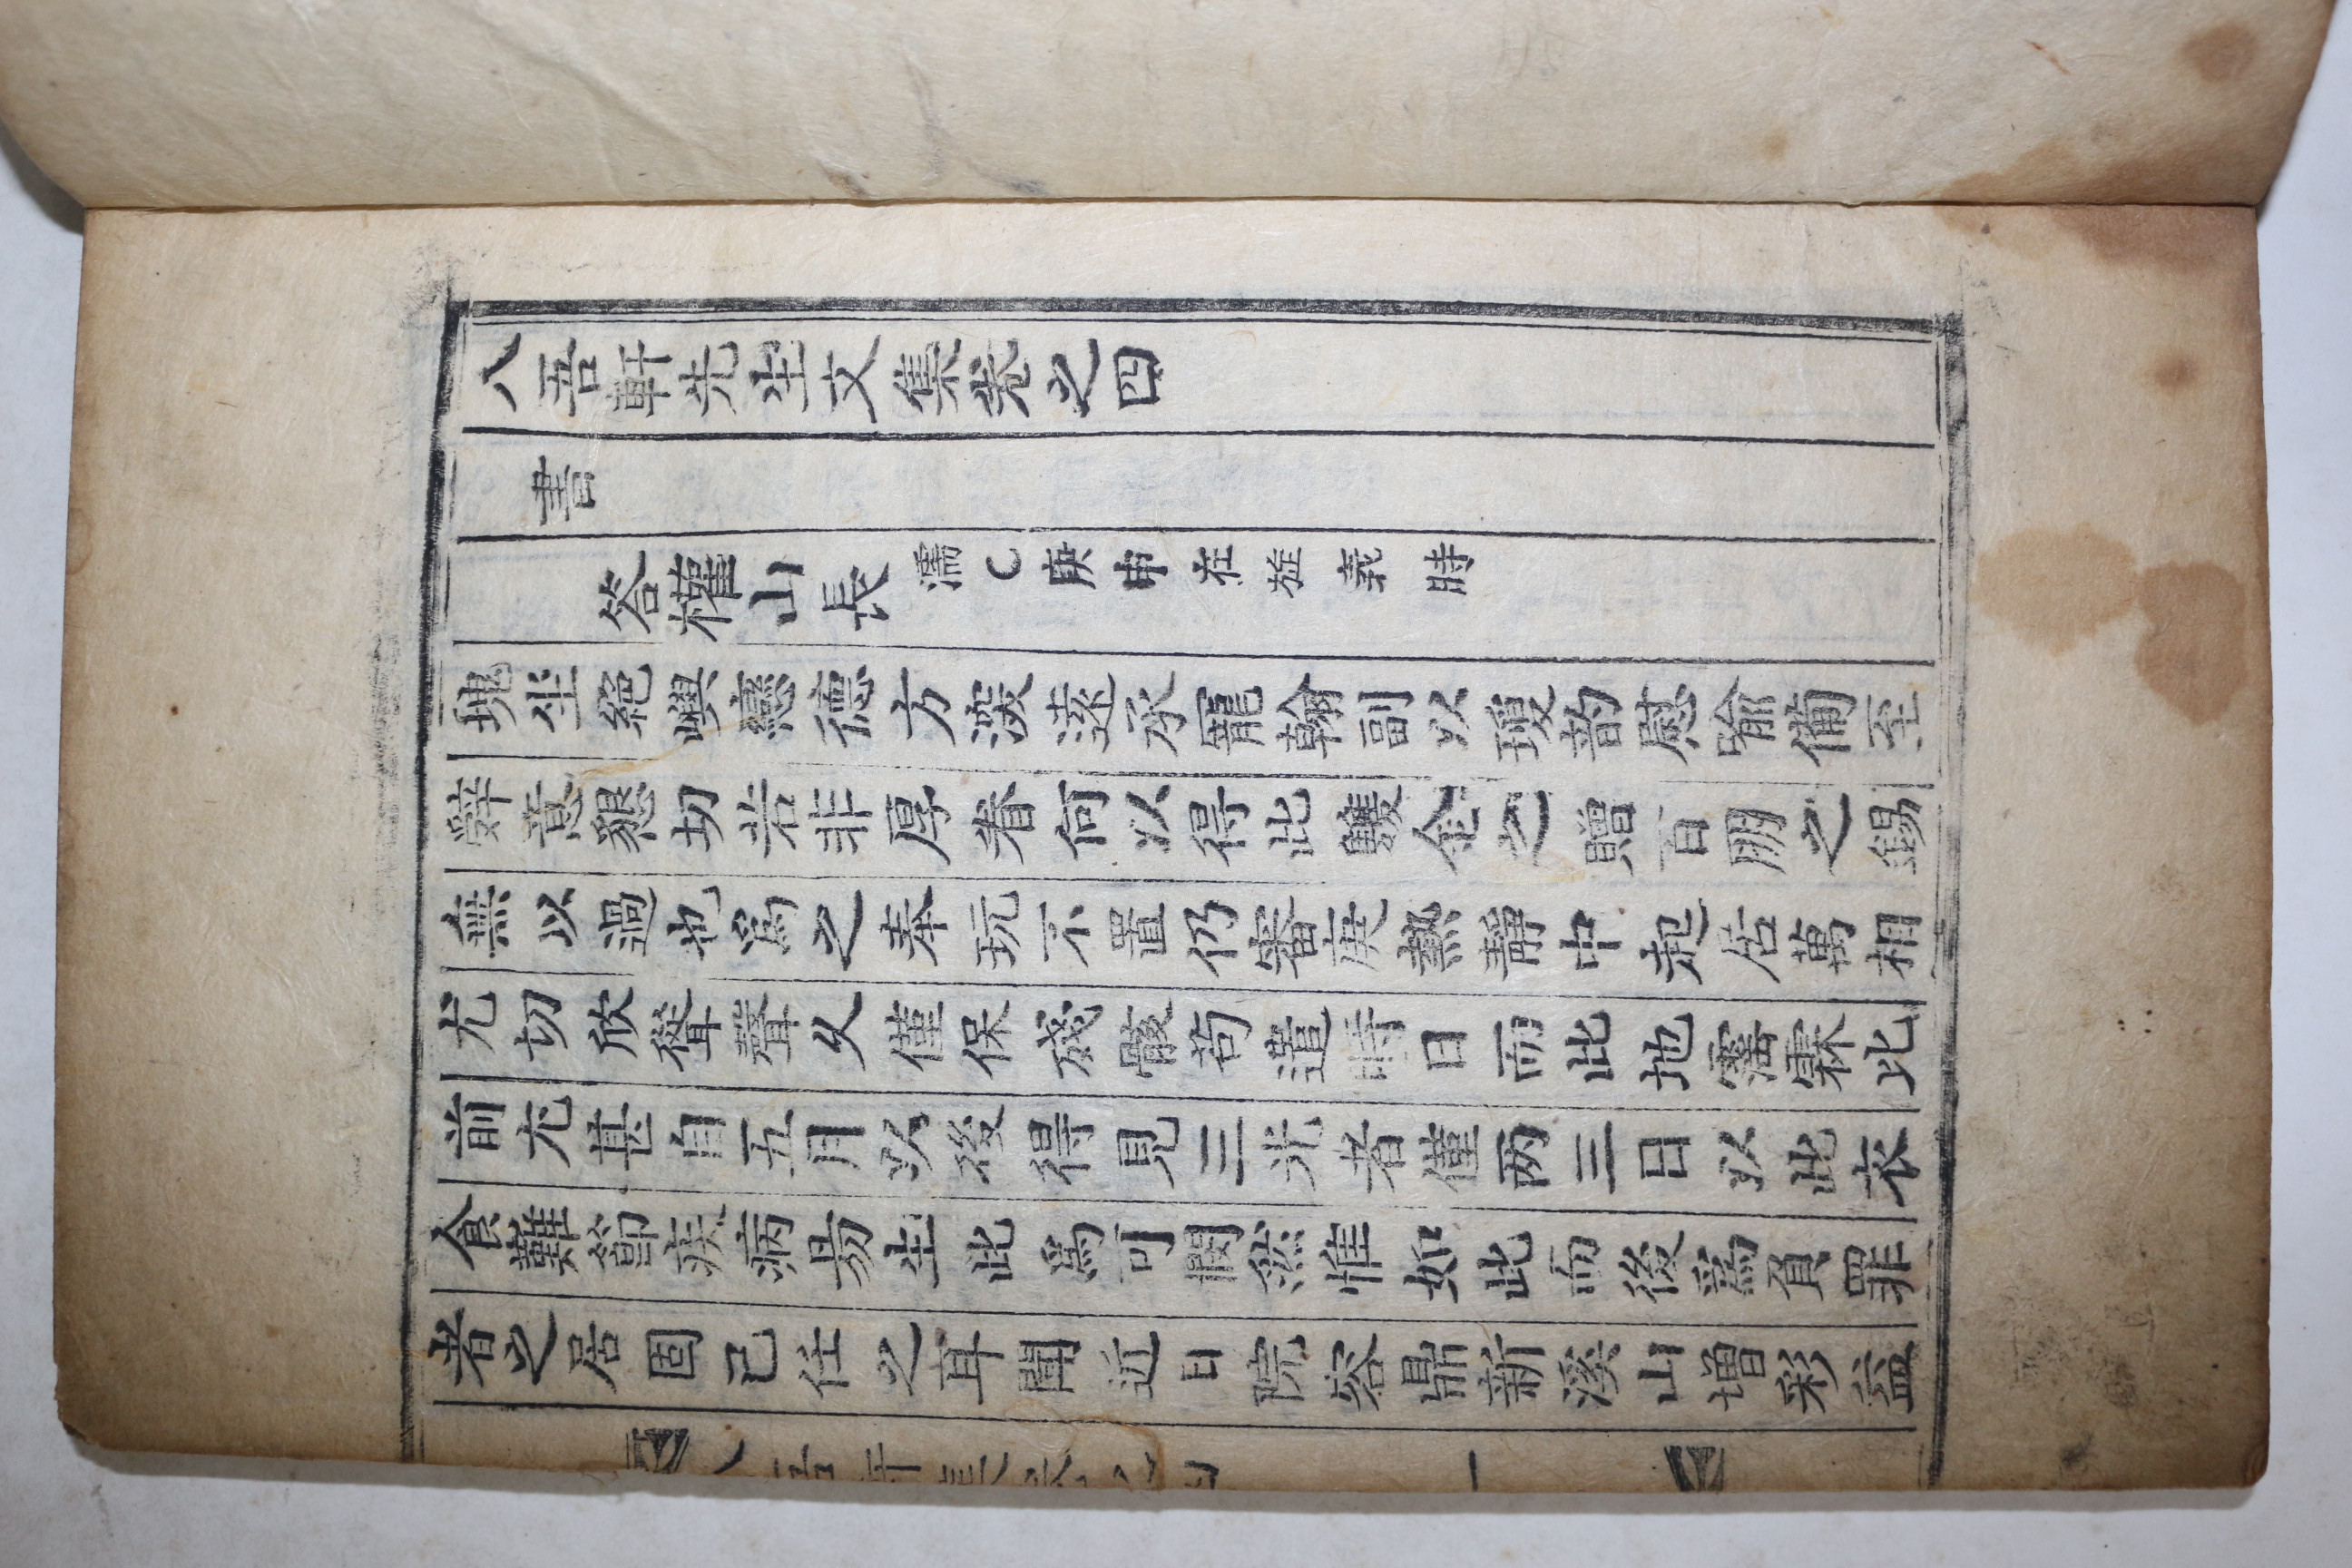 八吾軒先生文集卷之四
書
答權山長 濡 ○庚申在旌義時
塊坐絶嶼戀德方深遠承寵翰副以瓊韵慰喩備至
辭意懇切若非厚眷何以得此雙金之贈百朋之錫
無以過也爲之奉玩不置仍審庚熱靜中起居萬相
尤切欣聳聲久僅保殘骸苟遣時日而此地霪霖比
前尤甚自五月以後得見三光者僅两三日以此衣
食難節疾病易生此爲可憫然惟如此而後爲負罪
者之居固已任之耳聞近日院容鼎新溪山增彩益
八吾軒集卷之四 一